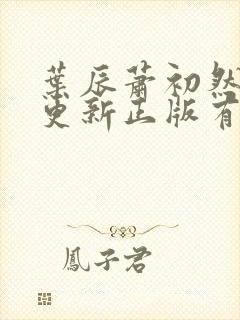 葉辰蕭初然
更新正版有
鳳子君